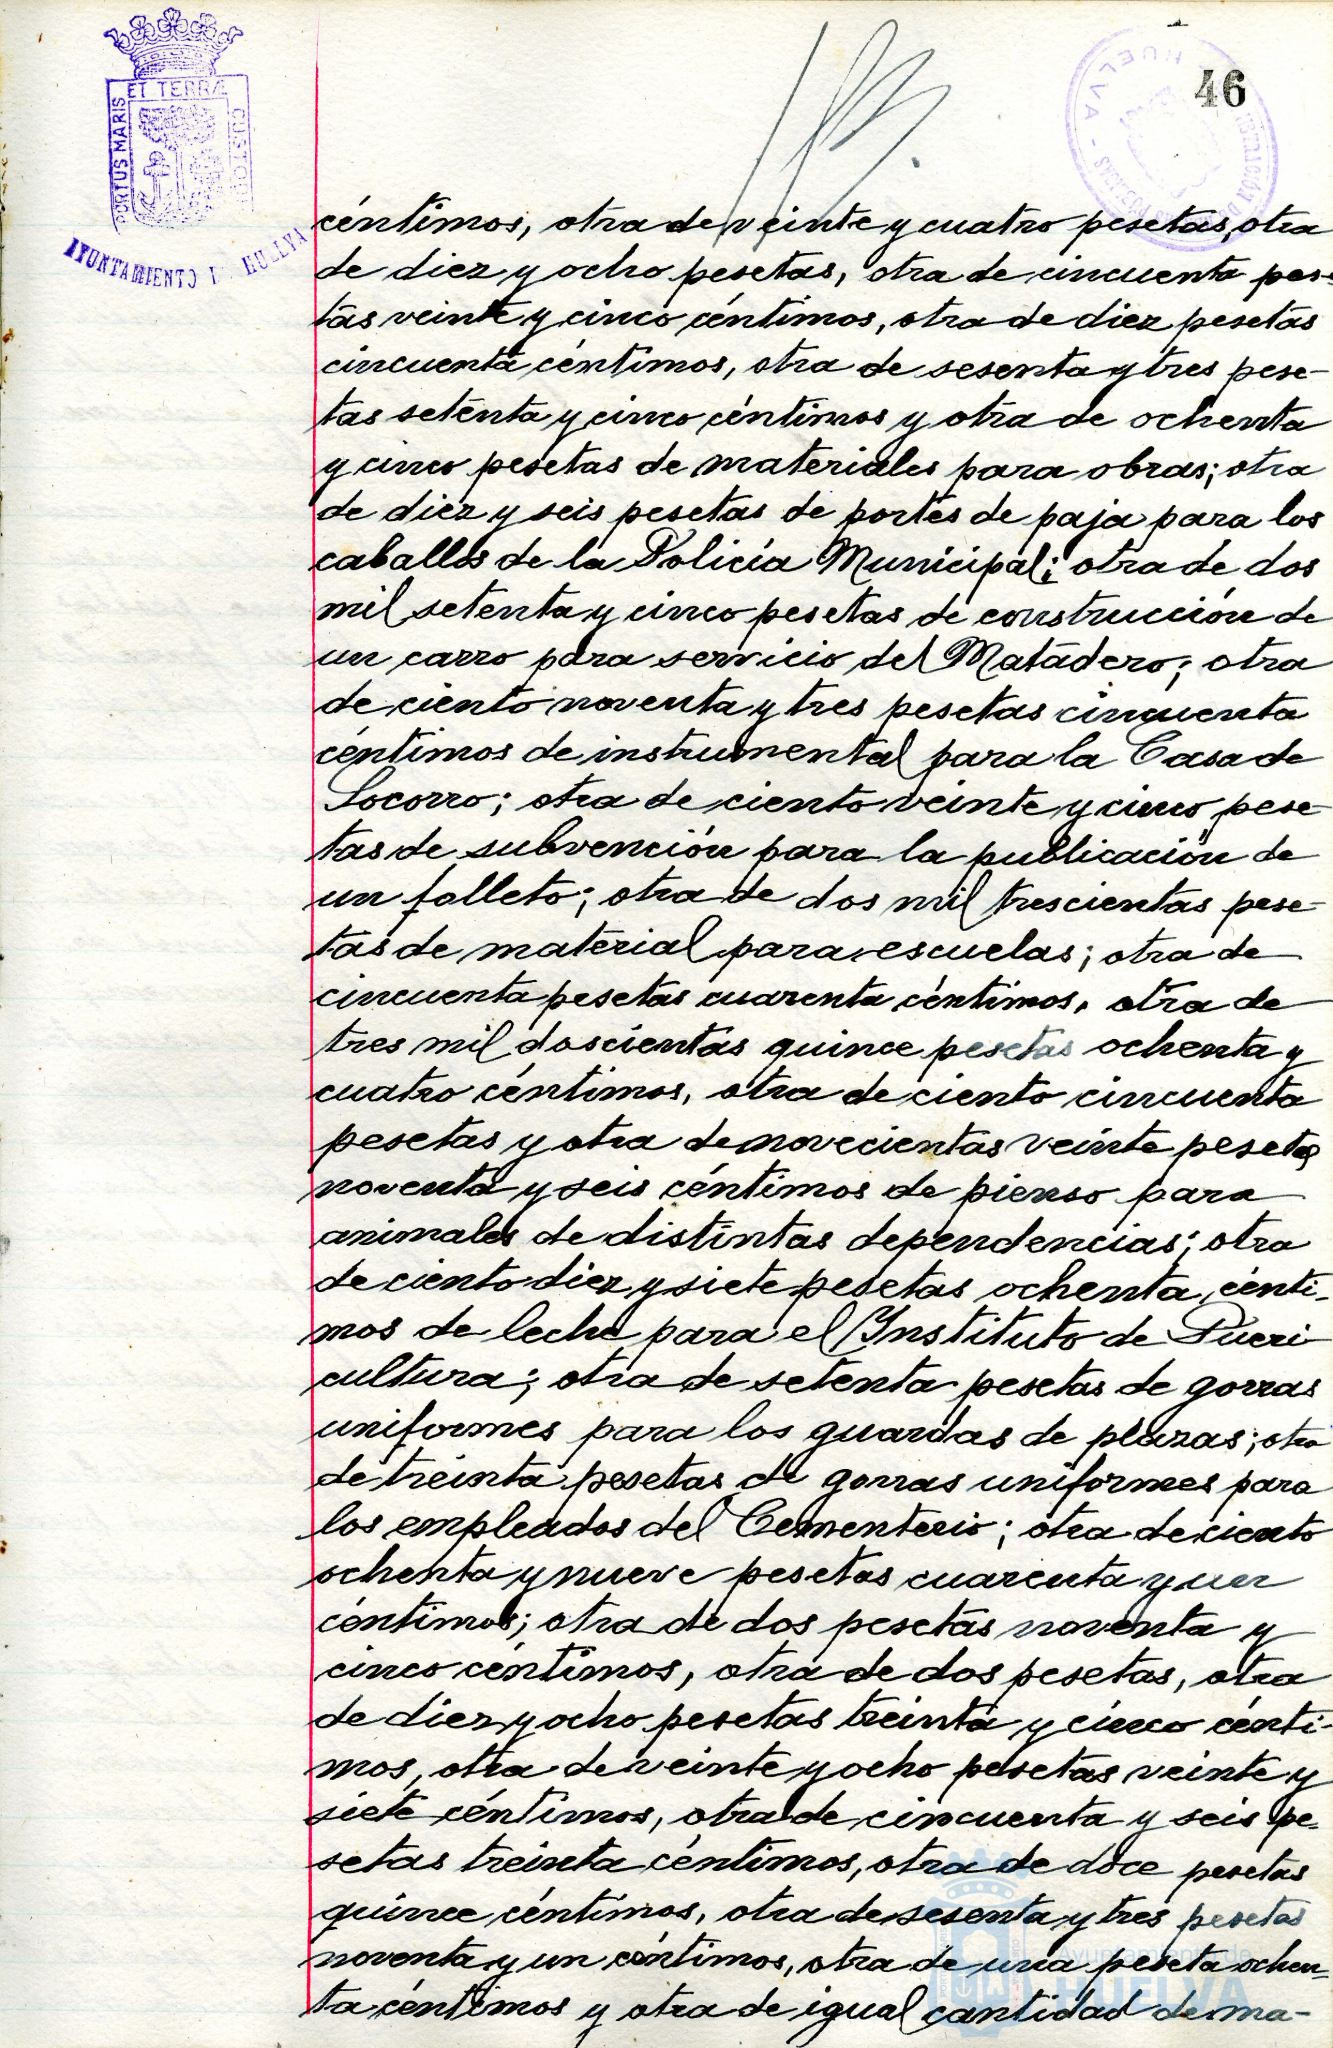 ET TERRÆ
PORTUS MARIS
CUSTODI
AYUNTAMIENTO HUELVA
HUELVA
46
céntimos, otra de veinte y cuatro pesetas, otra
de diez y ocho pesetas, otra de cincuenta pese-
tas veinte y cinco céntimos, otra de diez pesetas
cincuenta céntimos, otra de sesenta y tres pese-
tas setenta y cinco céntimos y otra de ochenta
y cinco pesetas de materiales para obras; otra
de diez y seis pesetas de portes de paja para los
caballos de la Policía Municipal; otra de dos
mil setenta y cinco pesetas de construcción de
un carro para servicio del Matadero; otra
de ciento noventa y tres pesetas cincuenta
céntimos de instrumental para la Casa de
Socorro; otra de ciento veinte y cinco pese-
tas de subvención para la publicación de
un folleto; otra de dos mil trescientas pese-
tas de material para escuelas; otra de
cincuenta pesetas cuarenta céntimos, otra de
tres mil doscientas quince pesetas ochenta y
cuatro céntimos, otra de ciento cincuenta
pesetas y otra de novecientas veinte pesetas
noventa y seis céntimos de pienso para
animales de distintas dependencias; otra
de ciento diez y siete pesetas ochenta cénti-
mos de leche para el Instituto de Pueri
cultura; otra de setenta pesetas de gorras
uniformes para los guardas de plazas; otra
de treinta pesetas de gorras uniformes para
los empleados del Cementerio; otra de ciento
ochenta y nueve pesetas cuarenta y un
céntimos; otra de dos pesetas noventa y
cinco céntimos, otra de dos pesetas, otra
de diez y ocho pesetas treinta y cinco cénti-
mos, otra de veinte y ocho pesetas veinte y
siete céntimos, otra de cincuenta y seis pe-
setas treinta céntimos, otra de doce pesetas
quince céntimos, otra de sesenta y tres pesetas
noventa y un céntimos, otra de una peseta ochen-
ta céntimos y otra de igual cantidad de ma-
Ayuntamiento de
HUELVA